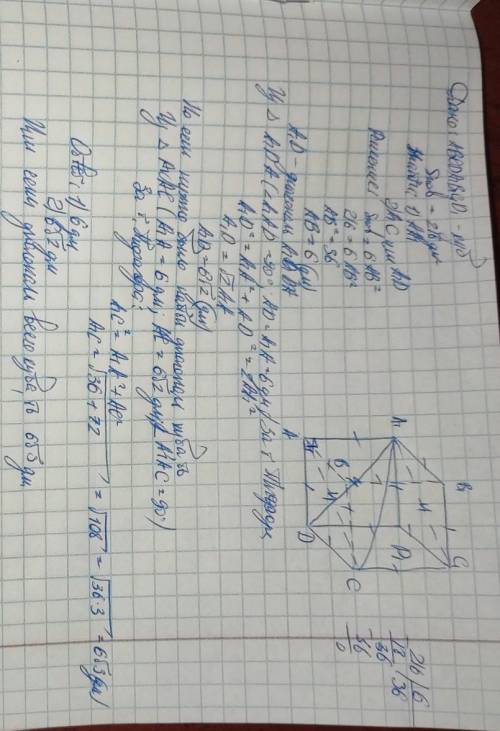 Дано: ABCDA₁B₁C₁D₁ - куб
Sпов = 216 дм²
Найти: 1) AA₁
2) AC или A₁D
Решение: Sпов = 6AB²
216 = 6AB²
AB² = 36
AB = 6 (дм)
A₁D - диагональ
Из △ A₁DA (∠A₁AD = 90°, AD = A₁A = 6 дм) За т. Пифагора
A₁D² = A₁A² + AD² = 2AA₁²
A₁D = √2 AA₁
A₁D = 6√2 (дм)
Но если нужно было найти диагональ куба, то
Из △ A₁AC (A₁A = 6 дм; AC = 6√2 дм; ∠A₁AC = 90°)
За т. Пифагора:
A₁C² = A₁A² + AC²
A₁C = √36 + 72 = √108 = √36·3 = 6√3 (дм)
Ответ: 1) 6 дм
2) 6√2 дм
Или если диагональ всего куба, то 6√3 дм
B₁
C₁
A₁
D₁
6
A
D
C
216 | 6
18 | 36
36
36
0